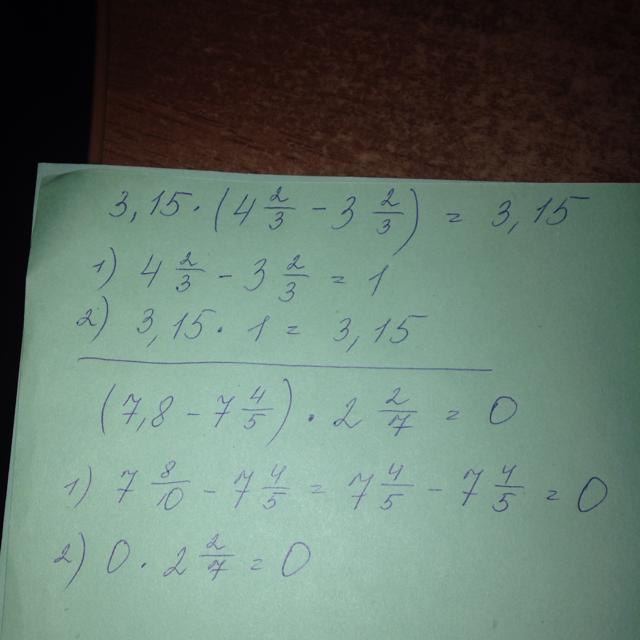 3,15 · (4 2/3 - 3 2/3) = 3,15
1) 4 2/3 - 3 2/3 = 1
2) 3,15 · 1 = 3,15
(7,8 - 7 4/5) · 2 2/7 = 0
1) 7 8/10 - 7 4/5 = 7 4/5 - 7 4/5 = 0
2) 0 · 2 2/7 = 0